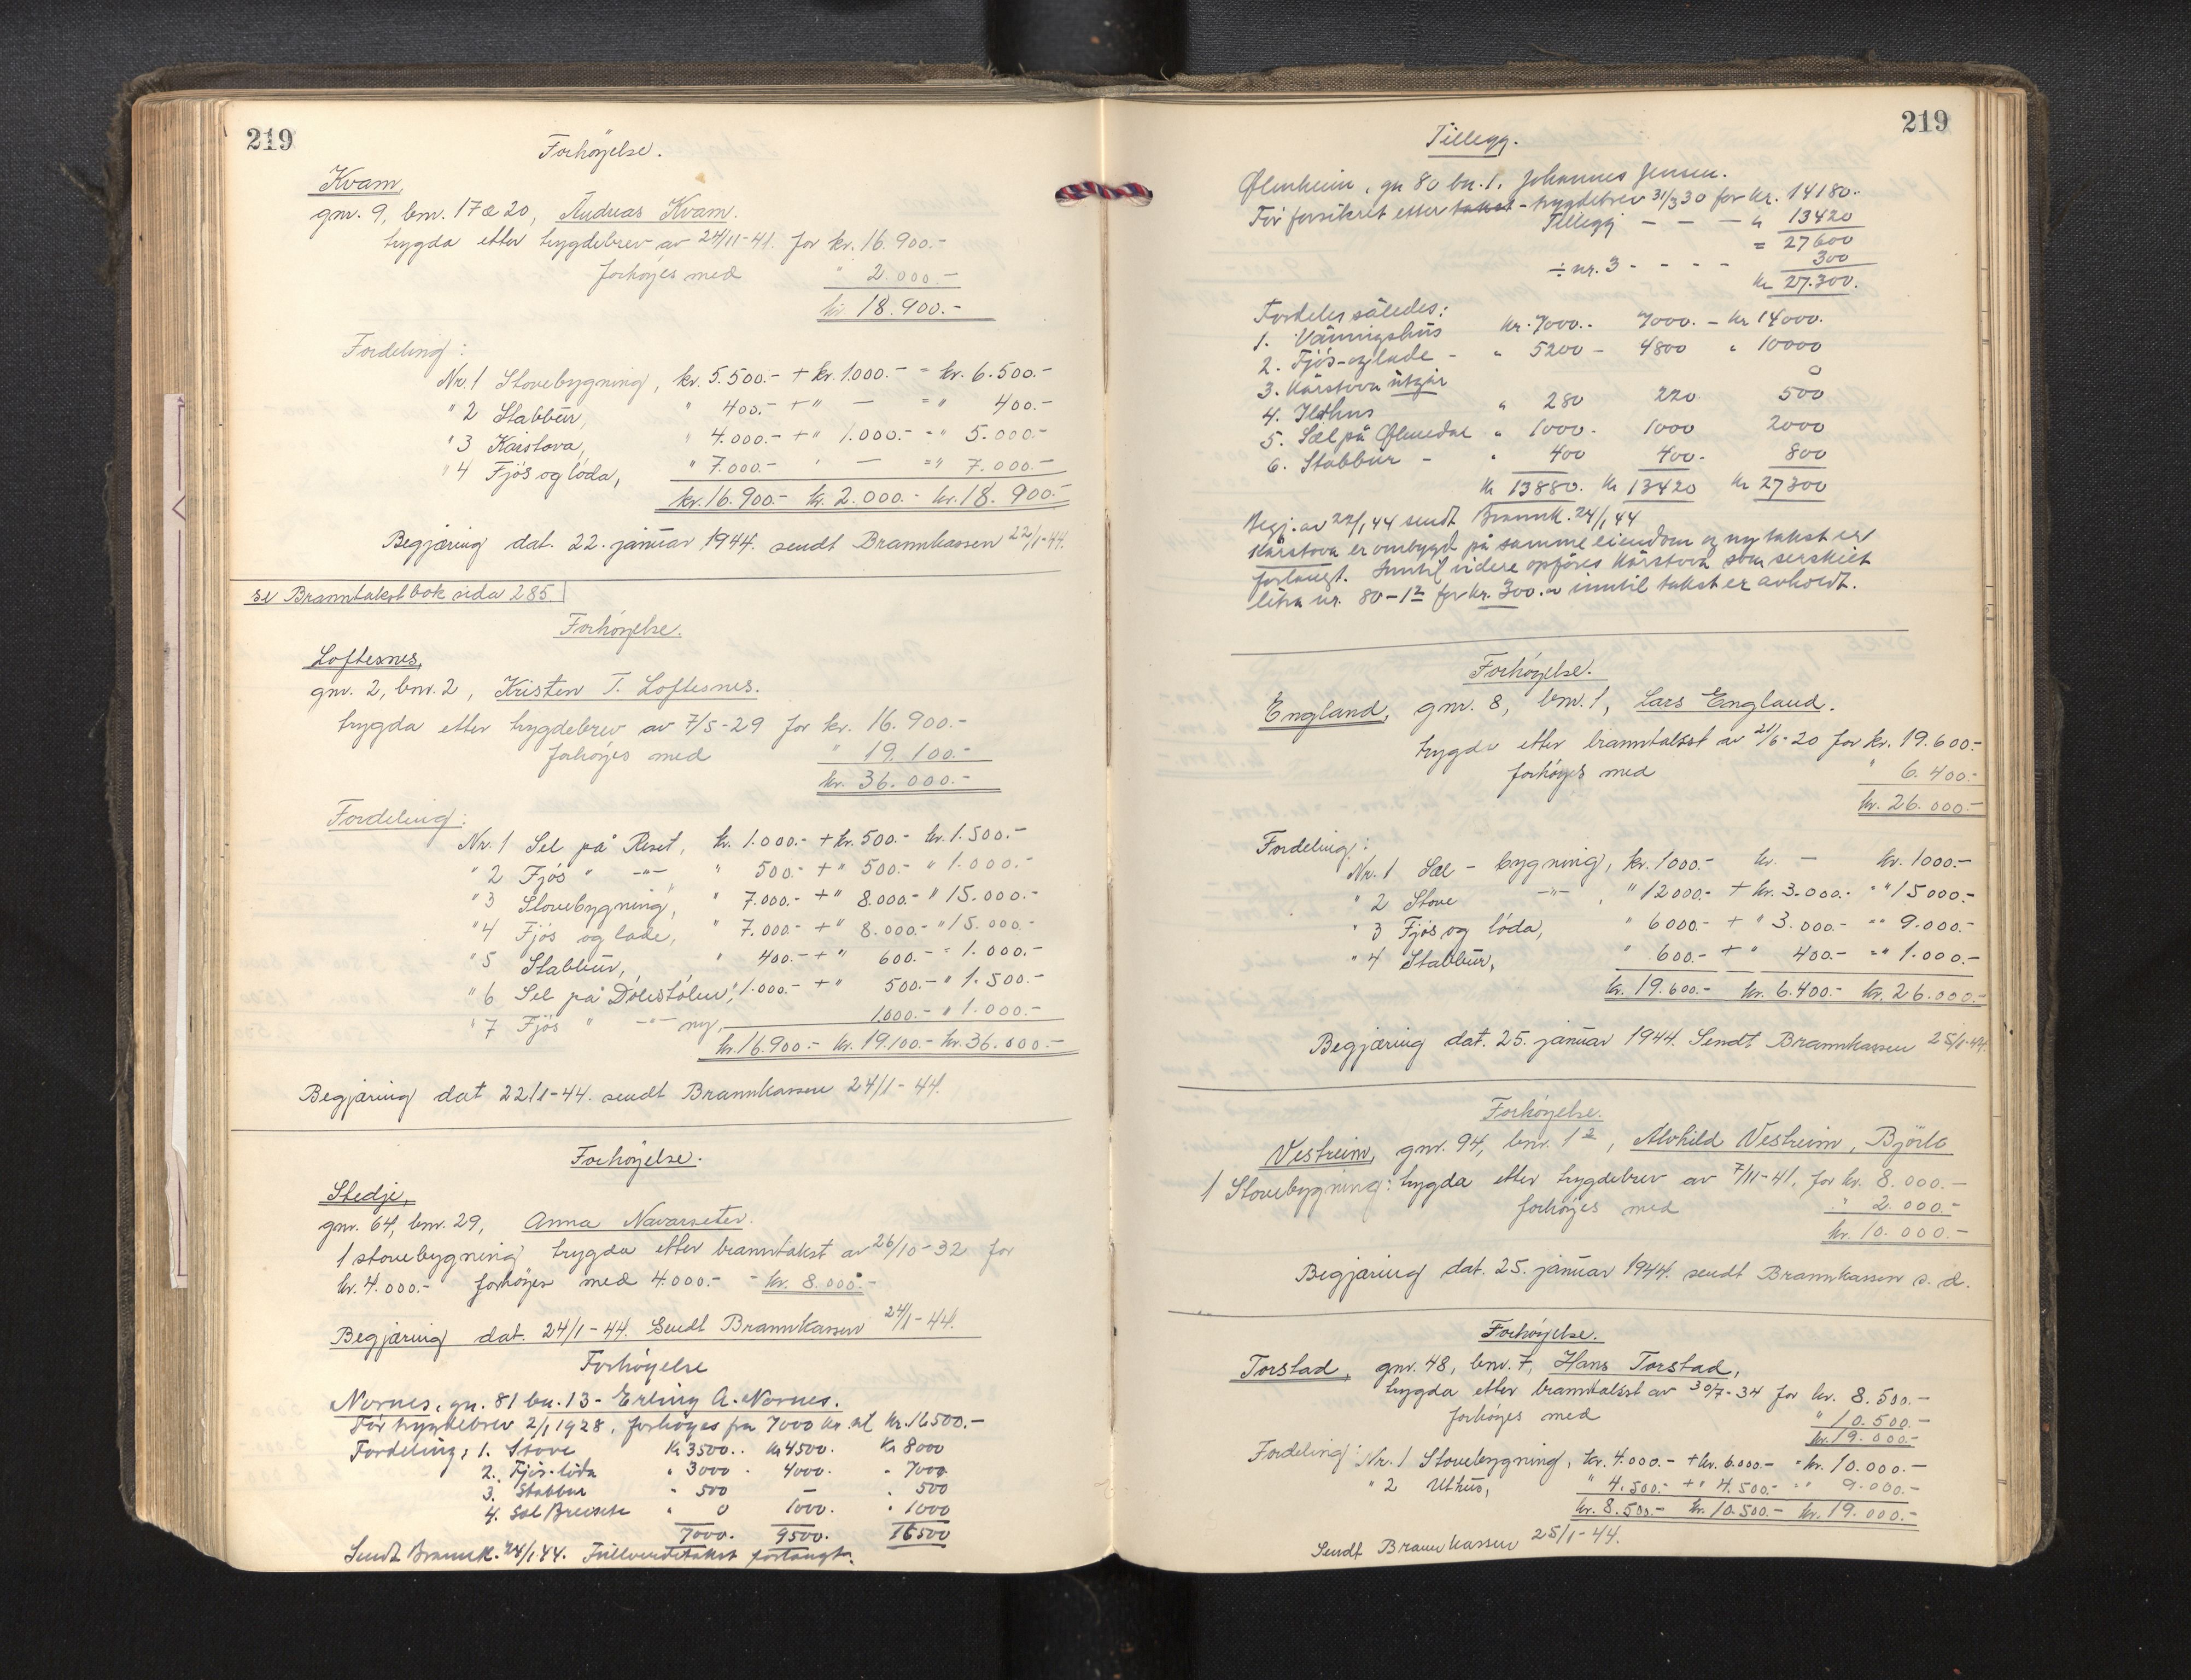 219
Forhöyelse.
Kvam,
gnr. 9, bnr. 17 & 20, Andreas Kvam.
trygda etter trygdebrev av 24/11-41. for kr. 16.900.-
forhöyes med " 2.000.-
kr. 18.900.-
Fordeling:
Nr. 1 Stovebygning, kr. 5.500.- + kr. 1.000.- = kr. 6.500.-
" 2 Stabbur, " 400.- + " — = " 400.-
" 3 Kårstova, " 4.000.- + " 1.000.- = " 5.000.-
" 4 Fjös og löda, " 7.000.- " — = " 7.000.-
kr. 16.900.- kr. 2.000.- kr. 18.900.-
Begjæring dat. 22. januar 1944. sendt Brannkassen 22/1-44.
se Branntakstbok sida 285
Forhöyelse.
Loftesnes,
gnr. 2, bnr. 2, Kristen T. Loftesnes.
trygda etter trygdebrev av 7/5-29 for kr. 16.900.-
forhöyes med " 19.100.-
kr. 36.000.-
Fordeling:
Nr. 1 Sel på Reset, kr. 1.000.- + kr. 500.- kr. 1.500.-
" 2 Fjös " -"- " 500.- + " 500.- " 1.000.-
" 3 Stovebygning, " 7.000.- + " 8.000.- " 15.000.-
" 4 Fjös og lade, " 7.000.- + " 8.000.- " 15.000.-
" 5 Stabbur, " 400.- + " 600.- " 1.000.-
" 6 Sel på Dalestölen, " 1.000.- + " 500.- " 1.500.-
" 7 Fjös " -"- ny, 1.000.- " 1.000.-
kr. 16.900.- kr. 19.100.- kr. 36.000.-
Begjæring dat 22/1-44. sendt Brannkassen 24/1-44.
Forhöyelse.
Stedje,
gnr. 64, bnr. 29, Anna Navarseter.
1 stovebygning trygda etter branntakst av 26/10-32 for
kr. 4.000.- forhöyes med 4.000.- = kr. 8.000.-
Begjæring dat. 24/1-44. Sendt Brannkassen 24/1-44.
Forhöyelse
Nornes, gn. 81 bn. 13 - Erling A. Nornes.
För trygdebrev 2/1 1928, forhöyes fra 7000 kr. til kr. 16500.-
Fordeling: 1. Stove Kr 3500.. Kr 4500. Kr 8000
2. Fjös-löda " 3000. 4000. " 7000
3. Stabbur " 500 — " 500
4. Sel " 0 1000. " 1000
7000. 9500. 16500
Sendt Brannk. 24/1 44. Fullverditakst forlangt.
219
Tillegg.
Ølmheim, gn 80 bn. 1. Johannes Jensen.
Før forsikret etter takst - trygdebrev 31/3 30 for kr. 14180.-
Tillegg - - - " 13420
= 27600
÷ nr. 3 - - - - 300
kr 27.300.
Fordeles således:
1. Våningshus kr. 7000.- 7000. - kr 14000.
2. Fjös- og lade - " 5200 - 4800 " 10000
3. Kårstova utgår 0
4. Ildhus " 280 220 500
5. Sæl på Ølmedal " 1000. 1000 2000
6. Stabbur - " 400 400. 800
Kr 13880. Kr 13420 Kr 27300
Begj. av 22/1 44 sendt Brannk. 24/1 44
Kårstova er ombygd på samme eiendom og ny takst er
forlangt. Inntil videre opføres Kårstova som serskilt
litra nr. 80-1² for kr. 300.- inntil takst er avholdt.
Forhöyelse.
England, gnr. 8, bnr. 1, Lars England.
trygda etter branntakst av 21/6-20 for kr. 19.600.-
forhöyes med " 6.400.-
kr. 26.000.-
Fordeling:
Nr. 1 Sæl - bygning, kr. 1000.- kr. — kr. 1000.-
" 2 Stove -"- , " 12000.- + kr. 3.000.- = " 15000.-
" 3 Fjös og löda, " 6000.- + " 3.000.- = " 9.000.-
" 4 Stabbur, " 600.- + " 400.- = " 1.000.-
kr. 19.600.- kr. 6.400.- kr. 26.000.-
Begjæring dat. 25. januar 1944. Sendt Brannkassen 25/1-44.
Forhöyelse.
Vestreim, gnr. 94, bnr. 1², Alvhild Vestreim, Björlo
1 Stovebygning: trygda etter trygdebrev av 7/11-41. for kr. 8.000.-
forhöyes med " 2.000.-
kr. 10.000.-
Begjæring dat. 25. januar 1944. sendt Brannkassen s. d.
Forhöyelse.
Torstad, gnr. 48, bnr. 7, Hans Torstad,
trygda etter branntakst av 30/7-34 for kr. 8.500.-
forhöyes med " 10.500.-
kr. 19.000.-
Fordeling: Nr. 1 Stovebygning, kr. 4.000.- + kr. 6.000.- = kr. 10.000.-
" 2 Uthus, " 4.500.- + " 4.500.- = " 9.000.-
kr. 8.500.- kr. 10.500.- kr. 19.000.-
Sendt Brannkassen 25/1-44.